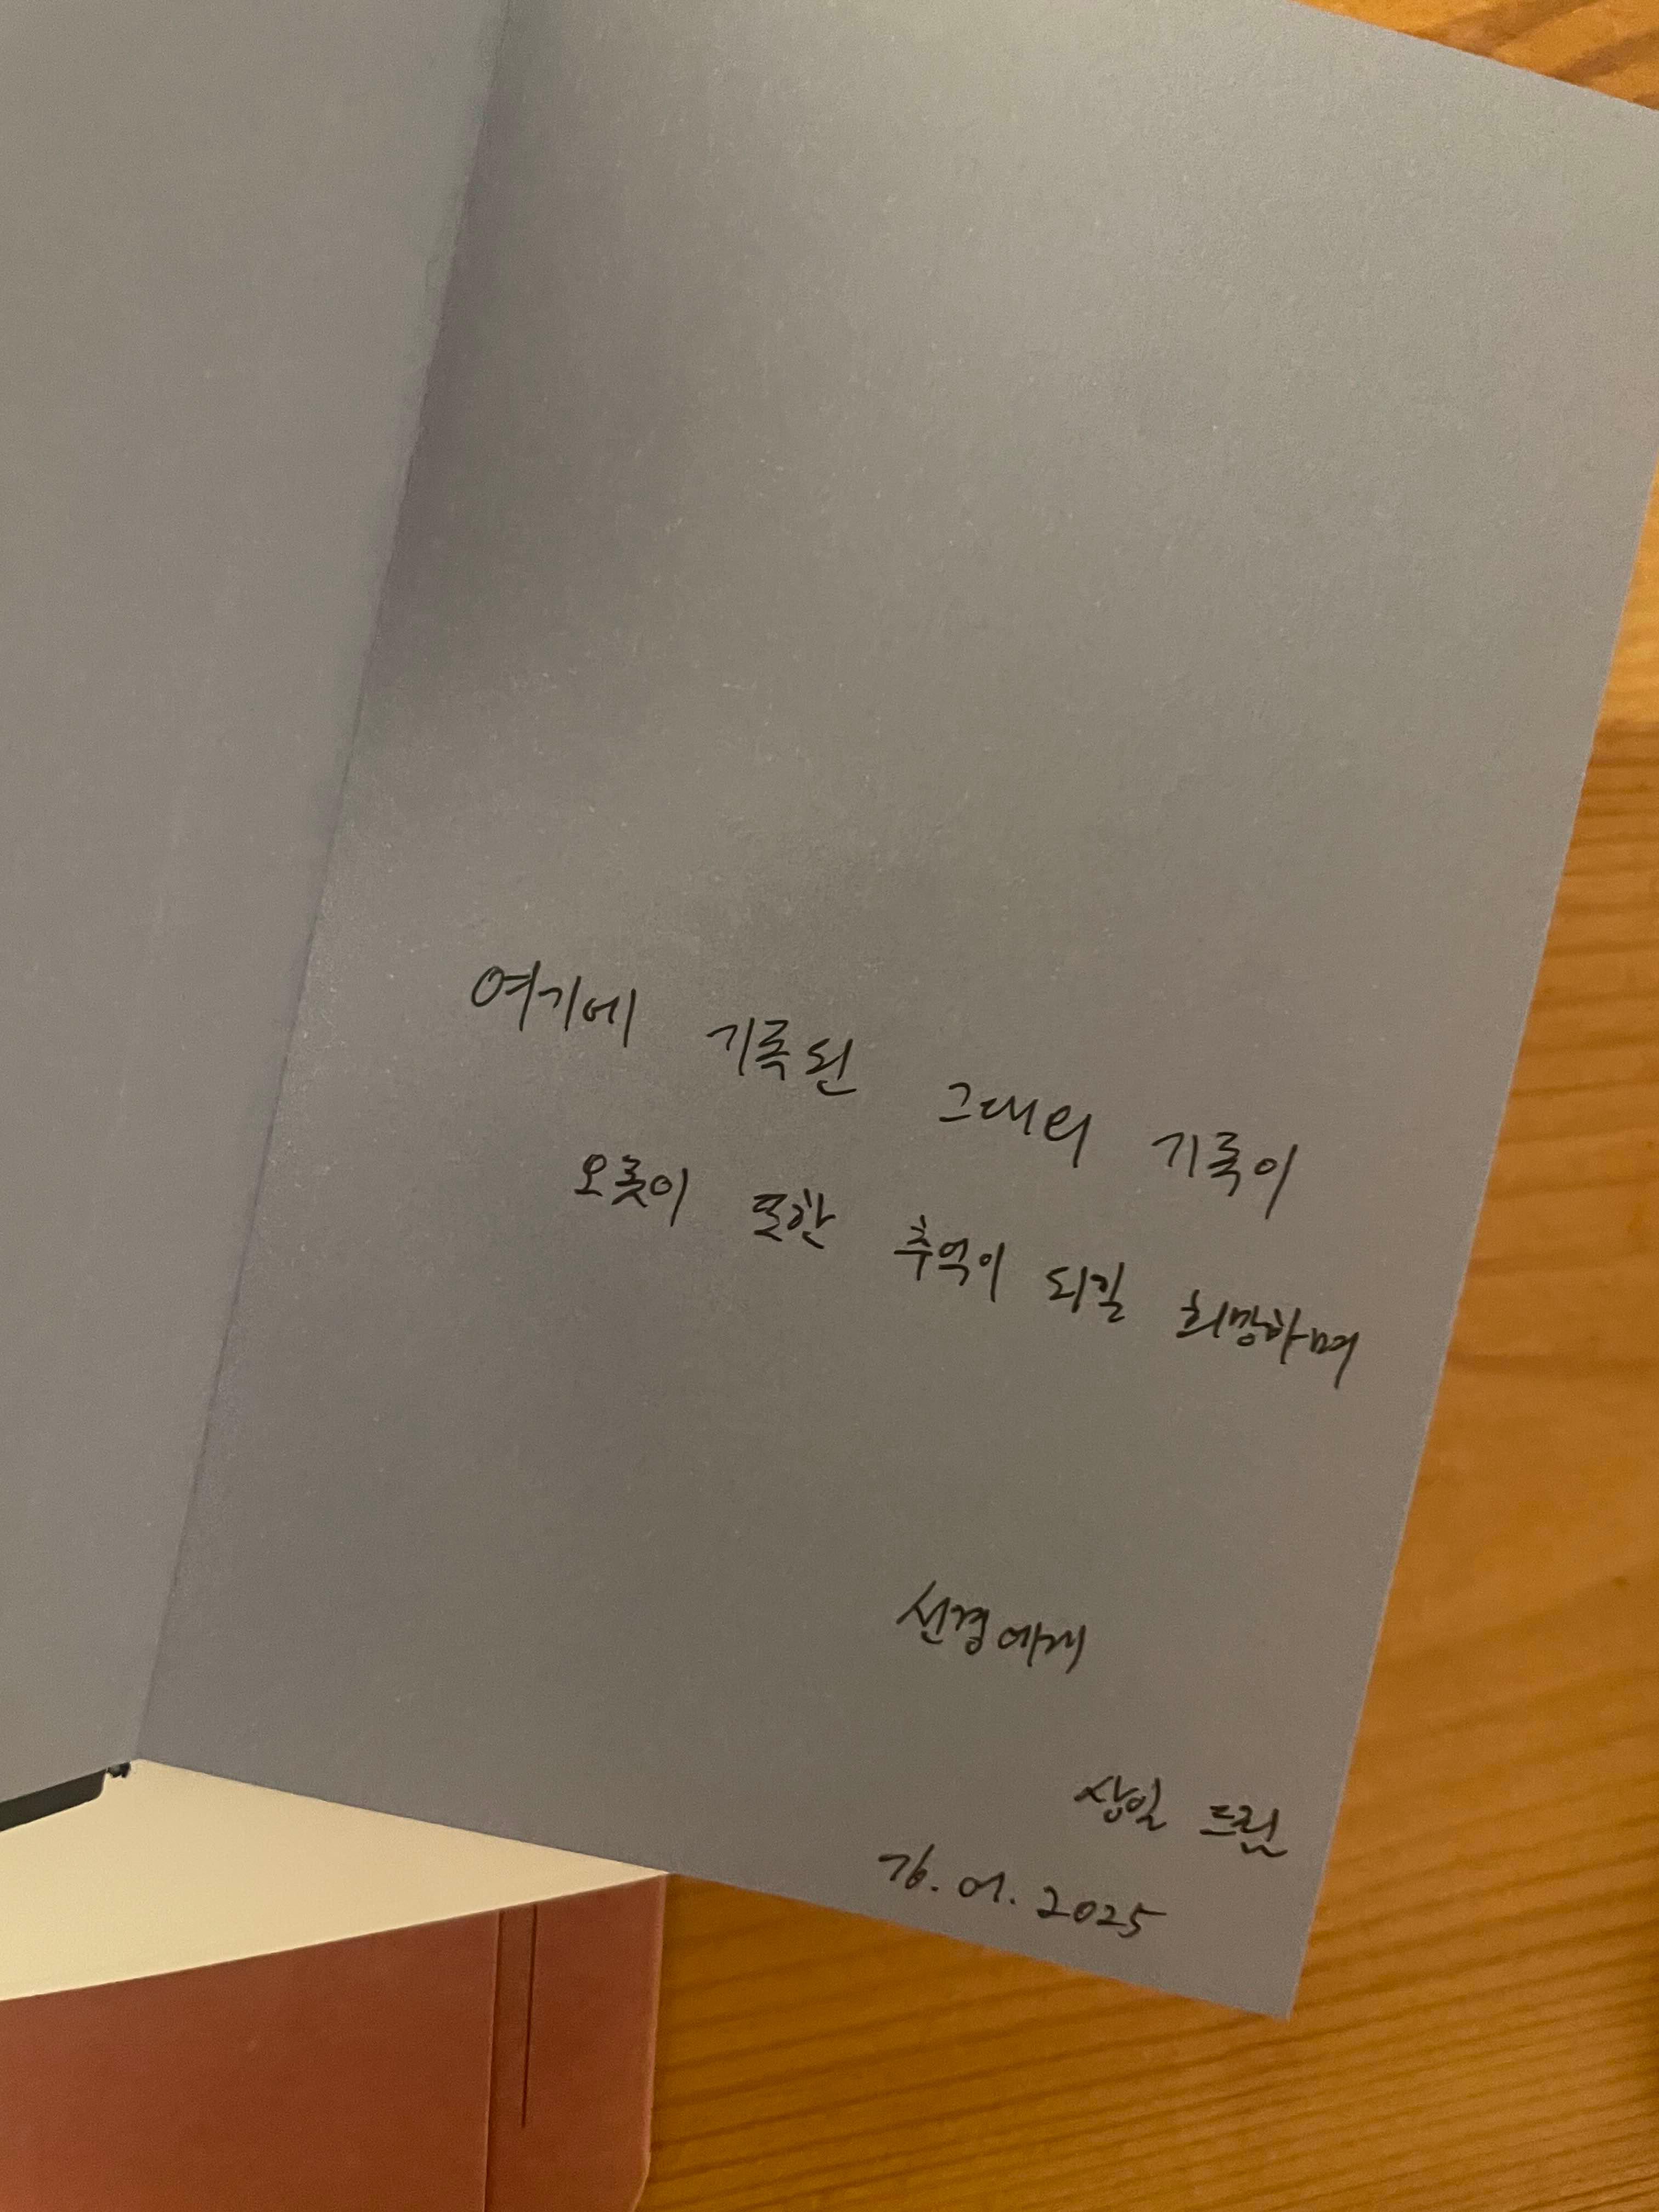 여기에 기록된 그대의 기록이
오롯이 또한 추억이 되길 희망하며
선경에게
상일 드림
01. 2025